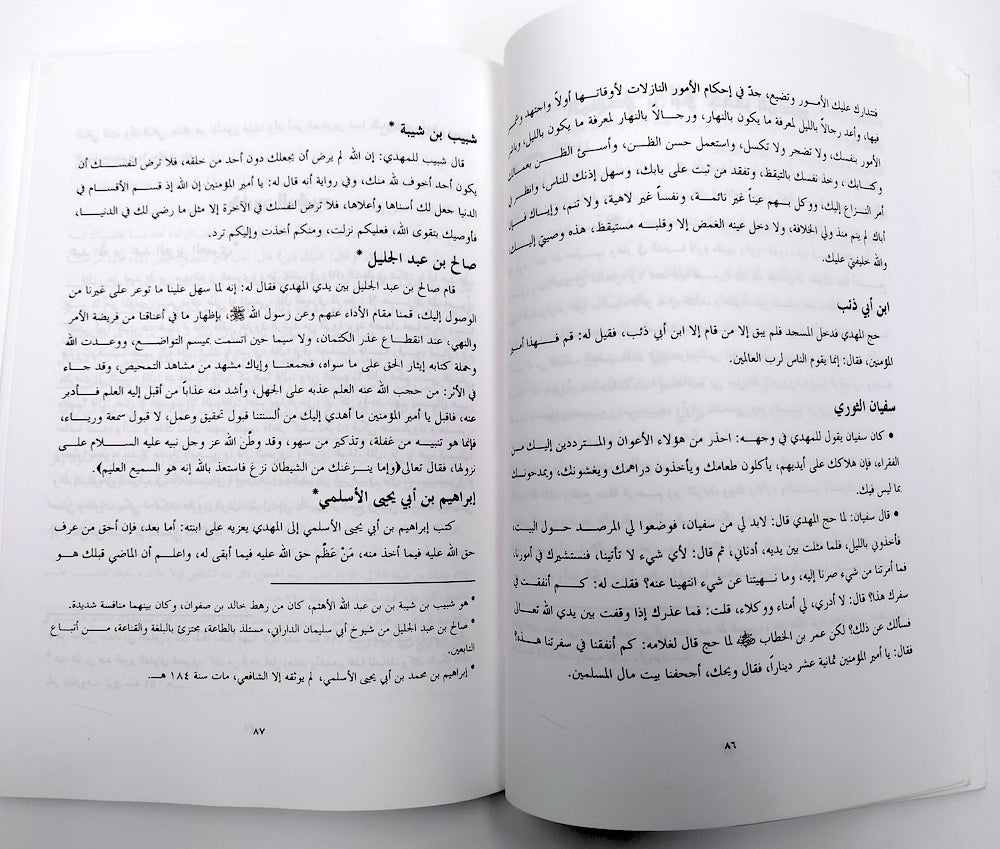 فتتدارك عليك الأمور وتضيع، جدّ في إحكام الأمور النازلات لأوقاتها أولاً واجتهد
فيها، وأعد رجالاً بالليل لمعرفة ما يكون بالنهار، ورجالاً بالنهار لمعرفة ما يكون بالليل،
الأمور بنفسك، ولا تضجر ولا تكسل، واستعمل حسن الظن، وأسئ الظن
وكتابك، وخذ نفسك بالتيقظ، وتفقد من ثبت على بابك، وسهل إذنك للناس، وانظر في
أمر النزاع إليك، ووكل بهم عيناً غير نائمة، ونفساً غير لاهية، ولا تنم، وإياك فإن
أباك لم ينم منذ ولي الخلافة، ولا دخل عينه الغمض إلا وقلبه مستيقظ، هذه وصيتي إليك،
والله خليفتي عليك.
ابن أبي ذئب
حج المهدي فدخل المسجد فلم يبق إلا من قام إلا ابن أبي ذئب، فقيل له: قم فهذا أمير
المؤمنين، فقال: إنما يقوم الناس لرب العالمين.
سفيان الثوري
• كان سفيان يقول للمهدي في وجهه: احذر من هؤلاء الأعوان والمترددين إليك من
الفقراء، فإن هلاكك على أيديهم، يأكلون طعامك ويأخذون دراهمك ويغشونك، ويمدحونك
بما ليس فيك.
• قال سفيان: لما حج المهدي قال: لابد لي من سفيان، فوضعوا لي المرصد حول البيت،
فأخذوني بالليل، فلما مثلت بين يديه، أدناني، ثم قال: لأي شيء لا تأتينا، فنستشيرك في أمورنا،
فما أمرتنا من شيء صرنا إليه، وما نهيتنا عن شيء انتهينا عنه؟ فقلت له: كم أنفقت في
سفرك هذا؟ قال: لا أدري، لي أمناء ووكلاء، قلت: فما عذرك إذا وقفت بين يدي الله تعالى
فسألك عن ذلك؟ لكن عمر بن الخطاب ﷺ لما حج قال لغلامه: كم أنفقنا في سفرتنا هذه؟
فقال: يا أمير المؤمنين ثمانية عشر ديناراً، فقال ويحك، أجحفنا بيت مال المسلمين.
٨٦
شبيب بن شيبة *
قال شبيب للمهدي: إن الله لم يرض أن يجعلك دون أحد من خلقه، فلا ترض لنفسك أن
يكون أحد أخوف لله منك، وفي رواية أنه قال له: يا أمير المؤمنين إن الله إذ قسم الأقسام في
الدنيا جعل لك أسناها وأعلاها، فلا ترض لنفسك في الآخرة إلا مثل ما رضي لك في الدنيا،
فأوصيك بتقوى الله، فعليكم نزلت، ومنكم أخذت وإليكم ترد.
صالح بن عبد الجليل *
قام صالح بن عبد الجليل بين يدي المهدي فقال له: إنه لما سهل علينا ما توعر على غيرنا من
الوصول إليك، قمنا مقام الأداء عنهم وعن رسول الله ﷺ، بإظهار ما في أعناقنا من فريضة الأمر
والنهي، عند انقطاع عذر الكتمان، ولا سيما حين اتسمت بميسم التواضع، ووعدت الله
وحملة كتابه إيثار الحق على ما سواه، فجمعنا وإياك مشهد من مشاهد التمحيص، وقد جاء
في الأثر: من حجب الله عنه العلم عذبه على الجهل، وأشد منه عذاباً من أقبل إليه العلم فأدبر
عنه، فاقبل يا أمير المؤمنين ما أهدي إليك من ألسنتنا قبول تحقيق وعمل، لا قبول سمعة ورياء،
فإنما هو تنبيه من غفلة، وتذكير من سهو، وقد وطّن الله عز وجل نبيه عليه السلام على
نزولها، فقال تعالى(وإما ينزغنك من الشيطان نزغ فاستعذ بالله إنه هو السميع العليم).
إبراهيم بن أبي يحيى الأسلمي*
كتب إبراهيم بن أبي يحيى الأسلمي إلى المهدي يعزيه على ابنته: أما بعد، فإن أحق من عرف
حق الله عليه فيما أخذ منه، مَنْ عَظّم حق الله عليه فيما أبقى له، واعلم أن الماضي قبلك هو
* هو شبيب بن شيبة بن بن عبد الله الأهثم، كان من رهط خالد بن صفوان، وكان بينهما منافسة شديدة.
* صالح بن عبد الجليل من شيوخ أبي سليمان الداراني، مستلذ بالطاعة، مجتزئ بالبلغة والقناعة، من أتباع
التابعين.
* إبراهيم بن محمد بن أبي يحيى الأسلمي، لم يوثقه إلا الشافعي، مات سنة ١٨٤ هـ.
٨٧